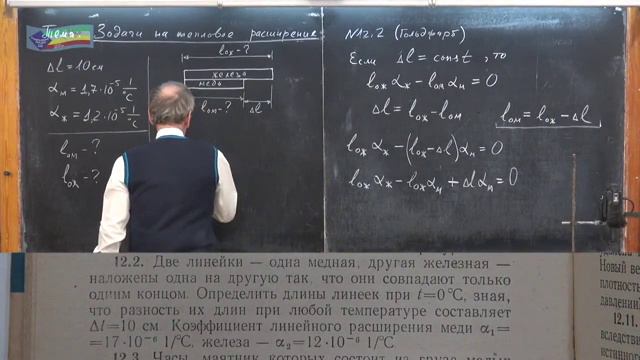 Тема: Задачи на тепловое расширение
Δl = 10 см
α_м = 1,7·10⁻⁵ 1/°C
α_ж = 1,2·10⁻⁵ 1/°C
l_ом - ?
l_ож - ?
l_ож - ?
железо
медь
l_ом - ?
Δl
N12.2 (Гольдфарб)
Если Δl = const, то
l_ож α_ж - l_ом α_м = 0
Δl = l_ож - l_ом
l_ом = l_ож - Δl
l_ож α_ж - (l_ож - Δl) α_м = 0
l_ож α_ж - l_ож α_м + Δl α_м = 0
12.2. Две линейки — одна медная, другая железная —
наложены одна на другую так, что они совпадают только
одним концом. Определить длины линеек при t=0 °C, зная,
что разность их длин при любой температуре составляет
Δl=10 см. Коэффициент линейного расширения меди α₁=
=17·10⁻⁶ 1/°C, железа — α₂=12·10⁻⁶ 1/°C.
12.3. Часы, маятник которых состоит из груза малых
Новый ве
плотность
давлении
12.11.
вследств